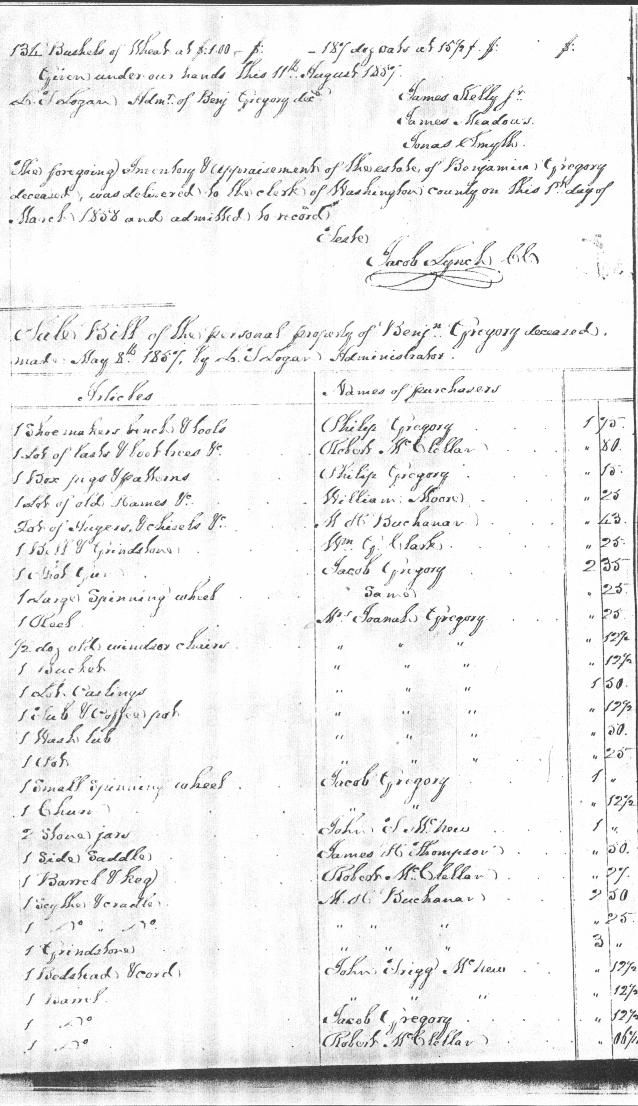 134 Bushels of Wheat at $1.00 - $: - 187 doz oats at 15 ¢ $: $:
Given under our hands this 11th August 1857.
L. T. Logan Admr. of Benj Gregory decd
James Kelly jr
James Meadows.
Jonas Smyth.
The foregoing Inventory & appraisement of the estate, of Benjamin Gregory
deceased, was delivered to the clerk of Washington county on this 1st day of
March 1858 and admitted to record
Teste
Jacob Lynch CC
Sale Bill of the personal property of Benjn Gregory deceased,
made May 8th 1857, by L. T Logan Administrator.
Articles Names of purchasers
1 Shoemakers bench & tools Philip Gregory 1 75
1 Lot of lasts & boot trees &c Robert McClellan " 80
1 Box pegs & patterns Philip Gregory " 15
1 Lot of old Hames &c William Moore " 25
Lot of Augers, & chisels &c M H Buchanan " 43
1 Bell & Grindstone Wm G. Clark " 25
1 Shot Gun Jacob Gregory 2 35
1 Large Spinning wheel Same " 25
1 Reel Mrs Joanah Gregory " 25
1/2 doz old windsor chairs " " " " 12½
1 Bucket " " " " 12½
1 Lot Castings " " " 1 50
1 Tub & Coffee pot " " " " 12½
1 Wash tub " " " " 50
1 Pot " " " " 25
1 Small Spinning wheel Jacob Gregory 1 "
1 Churn " " " 12½
2 Stone jars John T McNew 1 "
1 Side Saddle James H Thompson " 50
1 Barrel & keg Robert McClellan " 27
1 Scythe & cradle M. H Buchanan 2 50
1 Do " Do " " " " 25
1 Grindstone " " " 3 "
1 Bedstead & cord John Trigg McNew " 12½
1 Barrel " " " " 12½
1 Do Jacob Gregory " 12½
1 Do Robert McClellan " 06¼